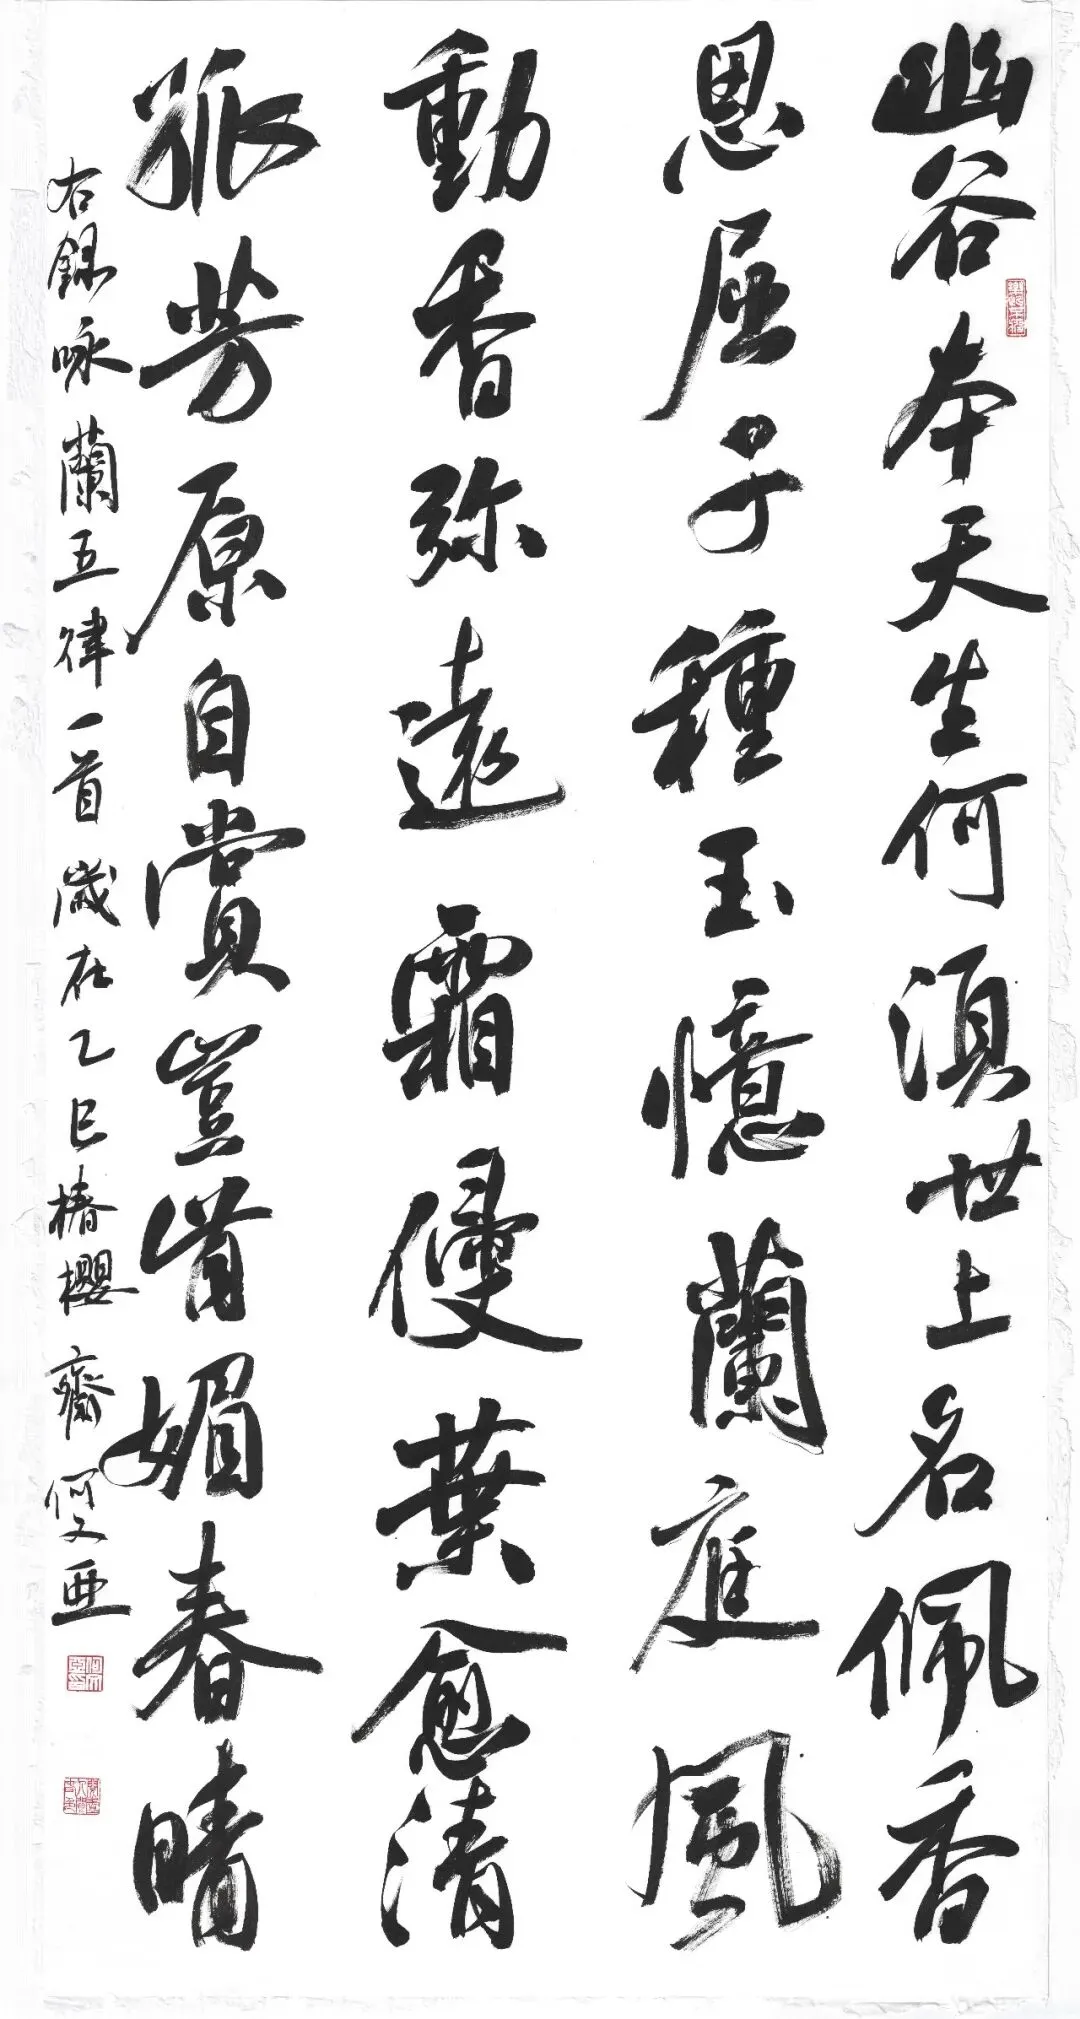 幽谷本天生何須世上名佩香
恩屈子種玉憶蘭庭風
動香弥遠霜侵葉愈清
孤芳原自賞豈肯媚春晴
右録咏蘭五律一首歲在乙巳椿櫻齋何文亜